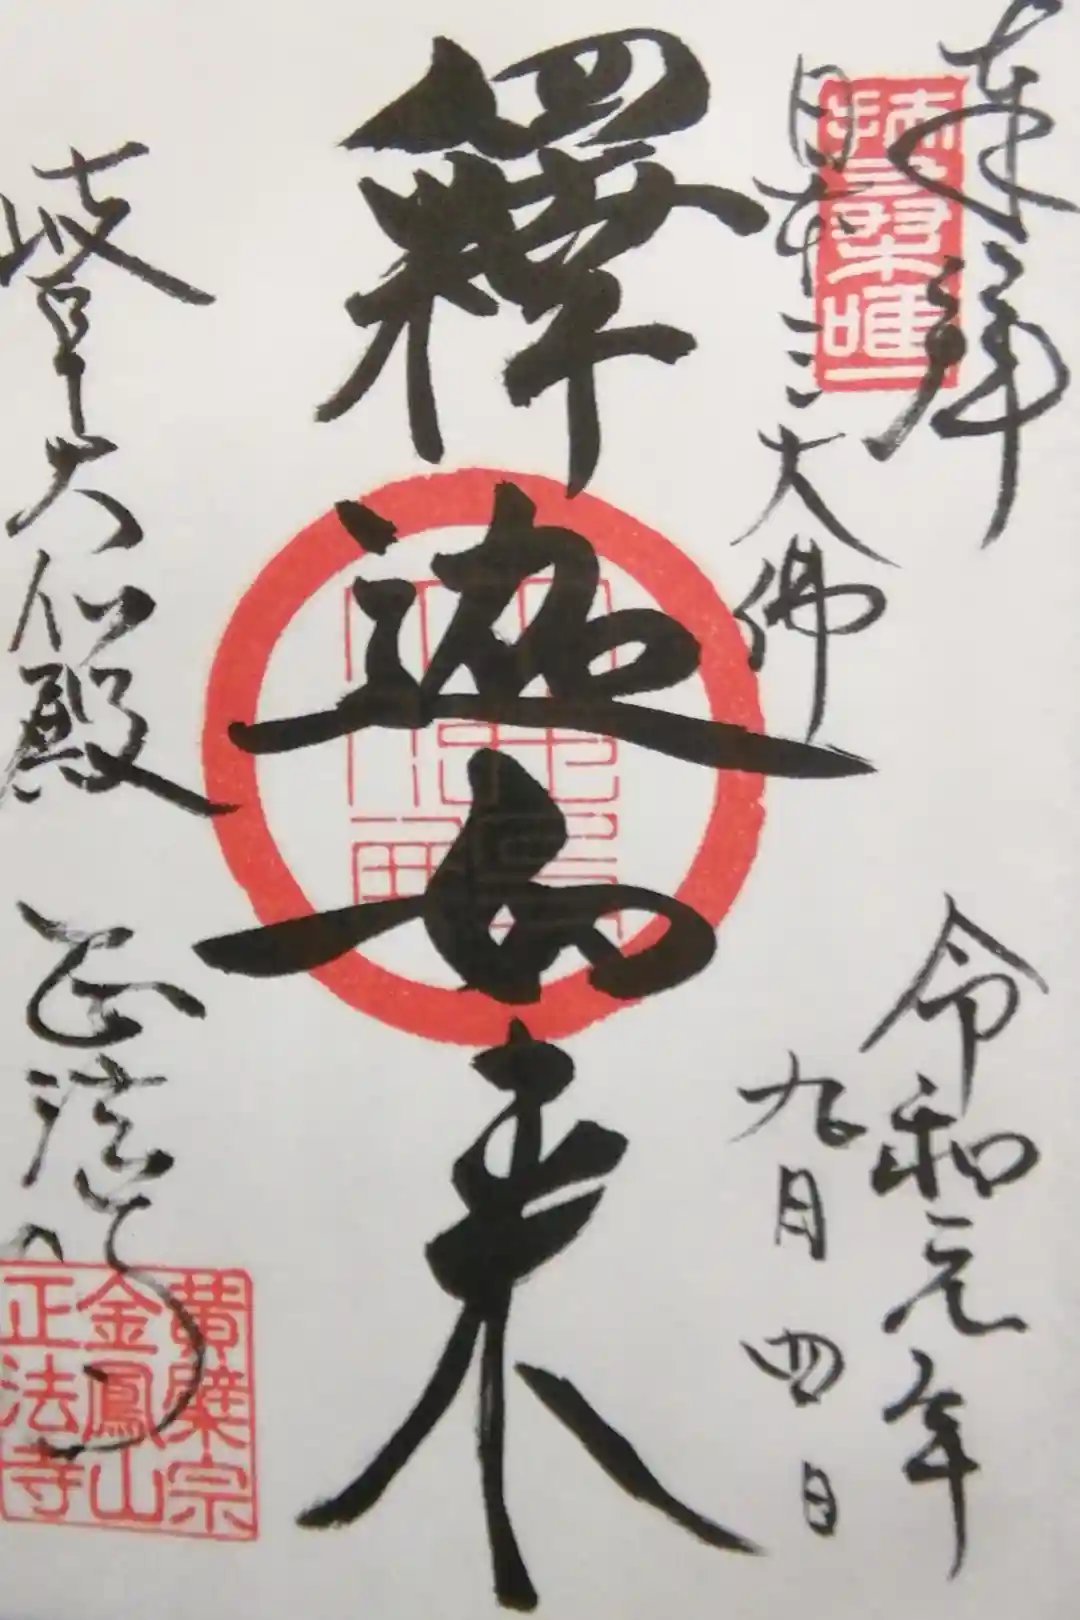 奉拜
日本三大佛
令和元年
九月四日
釋迦如来
岐阜大仏殿
正法寺
扶桑唯一
黄檗宗
金鳳山
正法寺